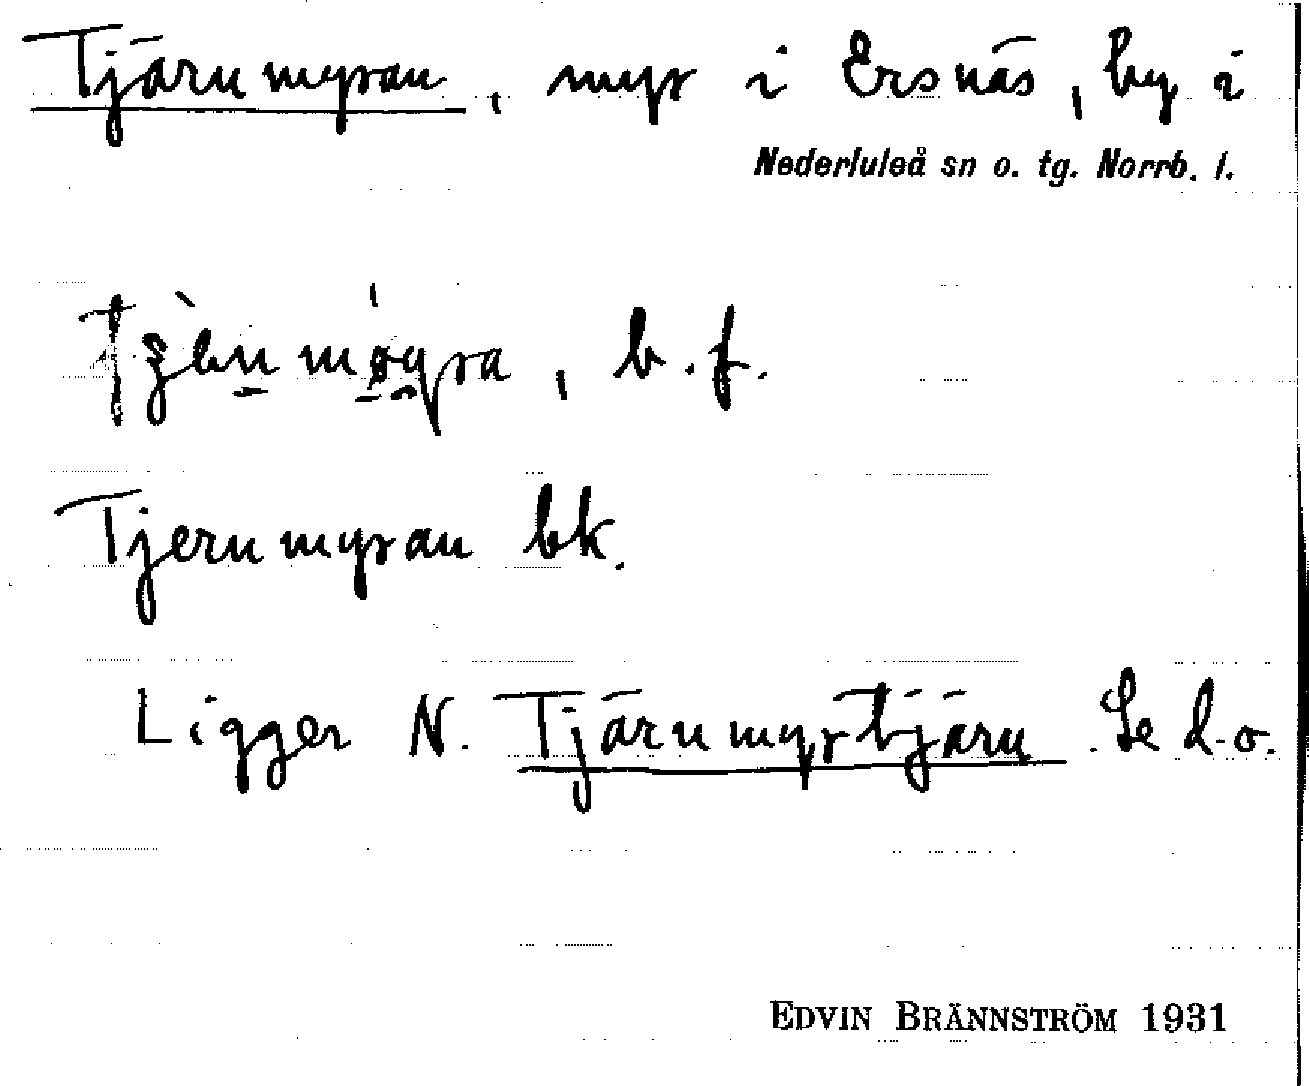 Tjärnmyran, myr i Ersnäs, by i
Nederluleå sn o. tg. Norrb. l.
b. f.
Tjernmyran bk.
Ligger N. Tjärnmyrtjärn. Se d.o.
EDVIN BRÄNNSTRÖM 1931